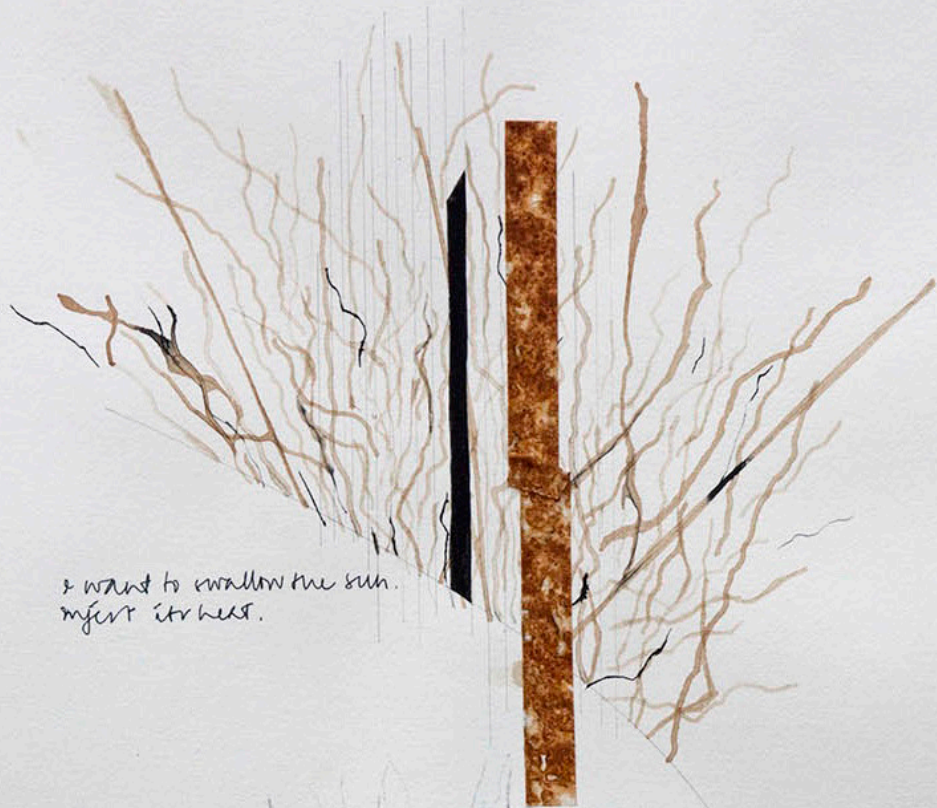 I want to swallow the sun.
inject its heat.